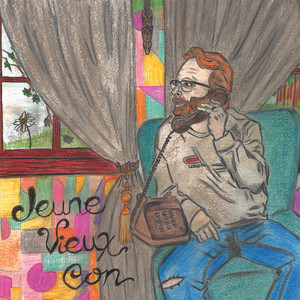 Jeune
Vieux
Con